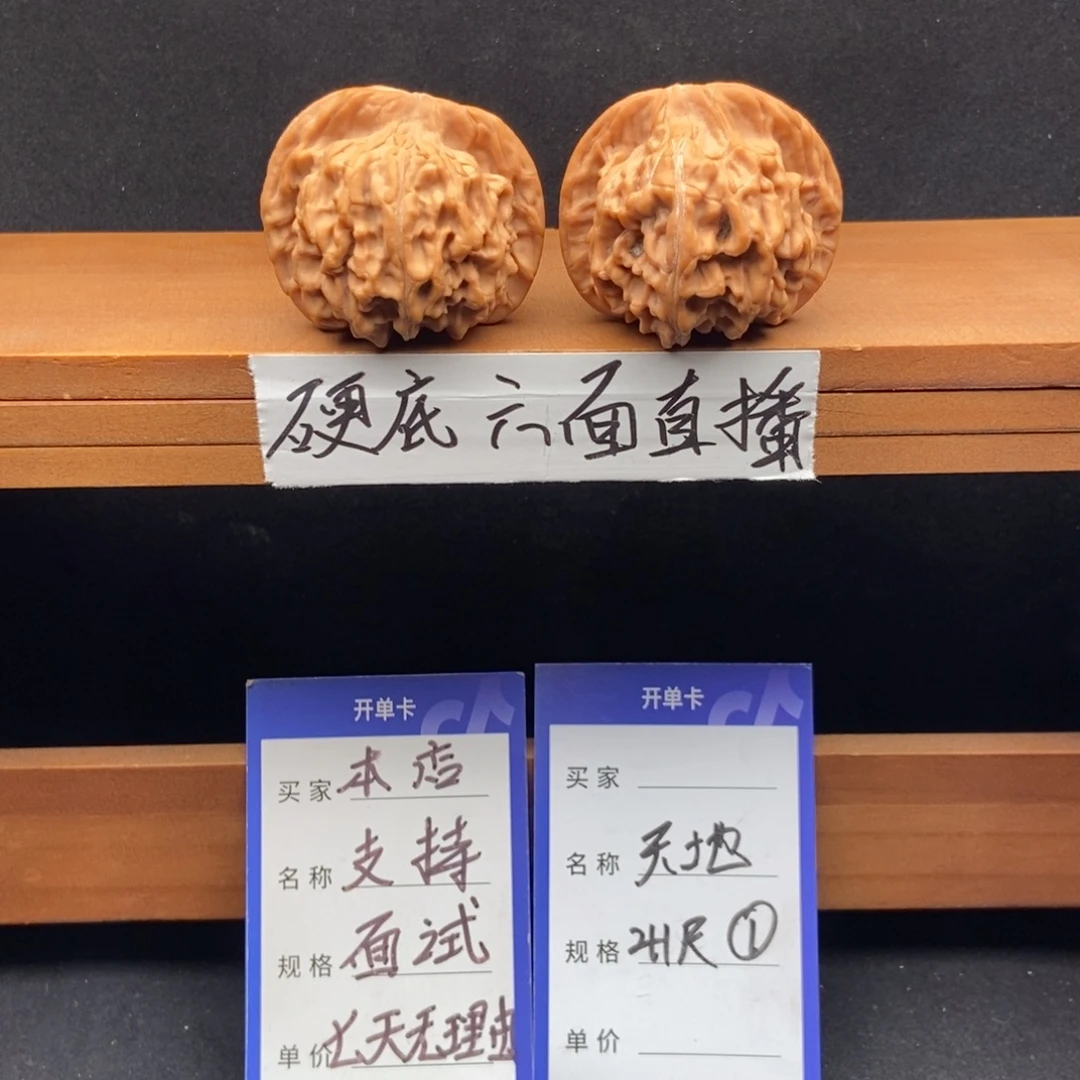 硬底 六面直播
开单卡
买家 本店
名称 支持
规格 面试
单价 七天无理由
开单卡
买家
名称 天地
规格 尺①
单价